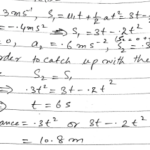 3ms⁻¹, S₁ = u₁t + ½at² = 3t -
= -.4ms⁻² ⇒ S₁ = 3t - .2t²
= 0, a₂ = .6ms⁻², S₂ = .3
order to catch up with the
S₂ = S₁
⇒ .3t² = 3t - .2t²
⇒ t = 6s
ance = .3t² or 3t - .2t²
= 10.8m